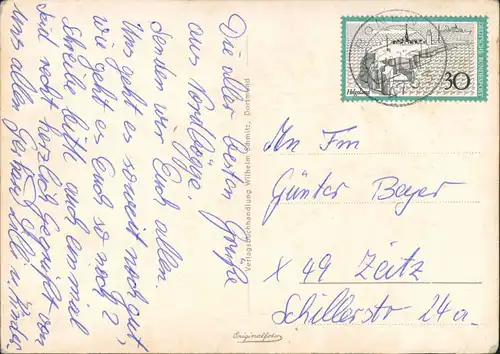 Die aller besten Grüße
aus Nordbögge.
Senden wir Euch allen.
Uns geht es soweit noch gut
wie geht es Euch so noch?
Schreibe bitte auch einmal
Seit recht herzlich Gegrüßt von
uns allen Gerhard, Elli u. Kinder
Verlagsbuchhandlung Wilhelm Schmitz, Dortmund
Originalfoto
DEUTSCHE BUNDESPOST
Helgoland
30
An Fm
Günter Beyer
X 49 Zeitz
Schillerstr 24a.